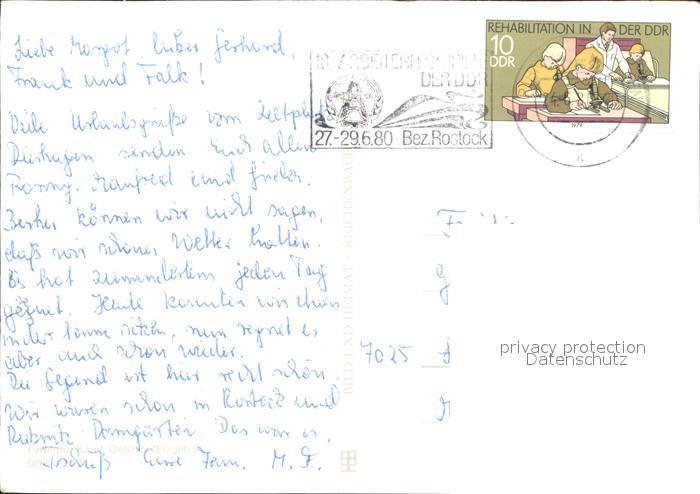 Liebe Margot lieber Gerhard,
Frank und Falk!
Viele Urlaubsgrüße vom Zeltplatz
Dierhagen senden Euch allen
Ronny, Manfred und
können wir nicht sagen,
daß wir schönes Wetter hatten.
Es hat zumindestens jeden Tag
geregnet. Heute konnten wir eben
in der Sonne sitzen, nun regnet es
aber auch schon wieder.
Die Gegend ist hier recht schön.
Wir waren schon in Rostock und
Ribnitz Damgarten. Das war es.
Tschüß Eure Fam. M. F.
BILD UND HEIMAT · REICHENBACH
18. ARBEITERFESTSPIELE
DER DDR
27.-29.6.80 Bez. Rostock
REHABILITATION IN DER DDR
10
DDR
1979
K
7025
privacy protection
Datenschutz